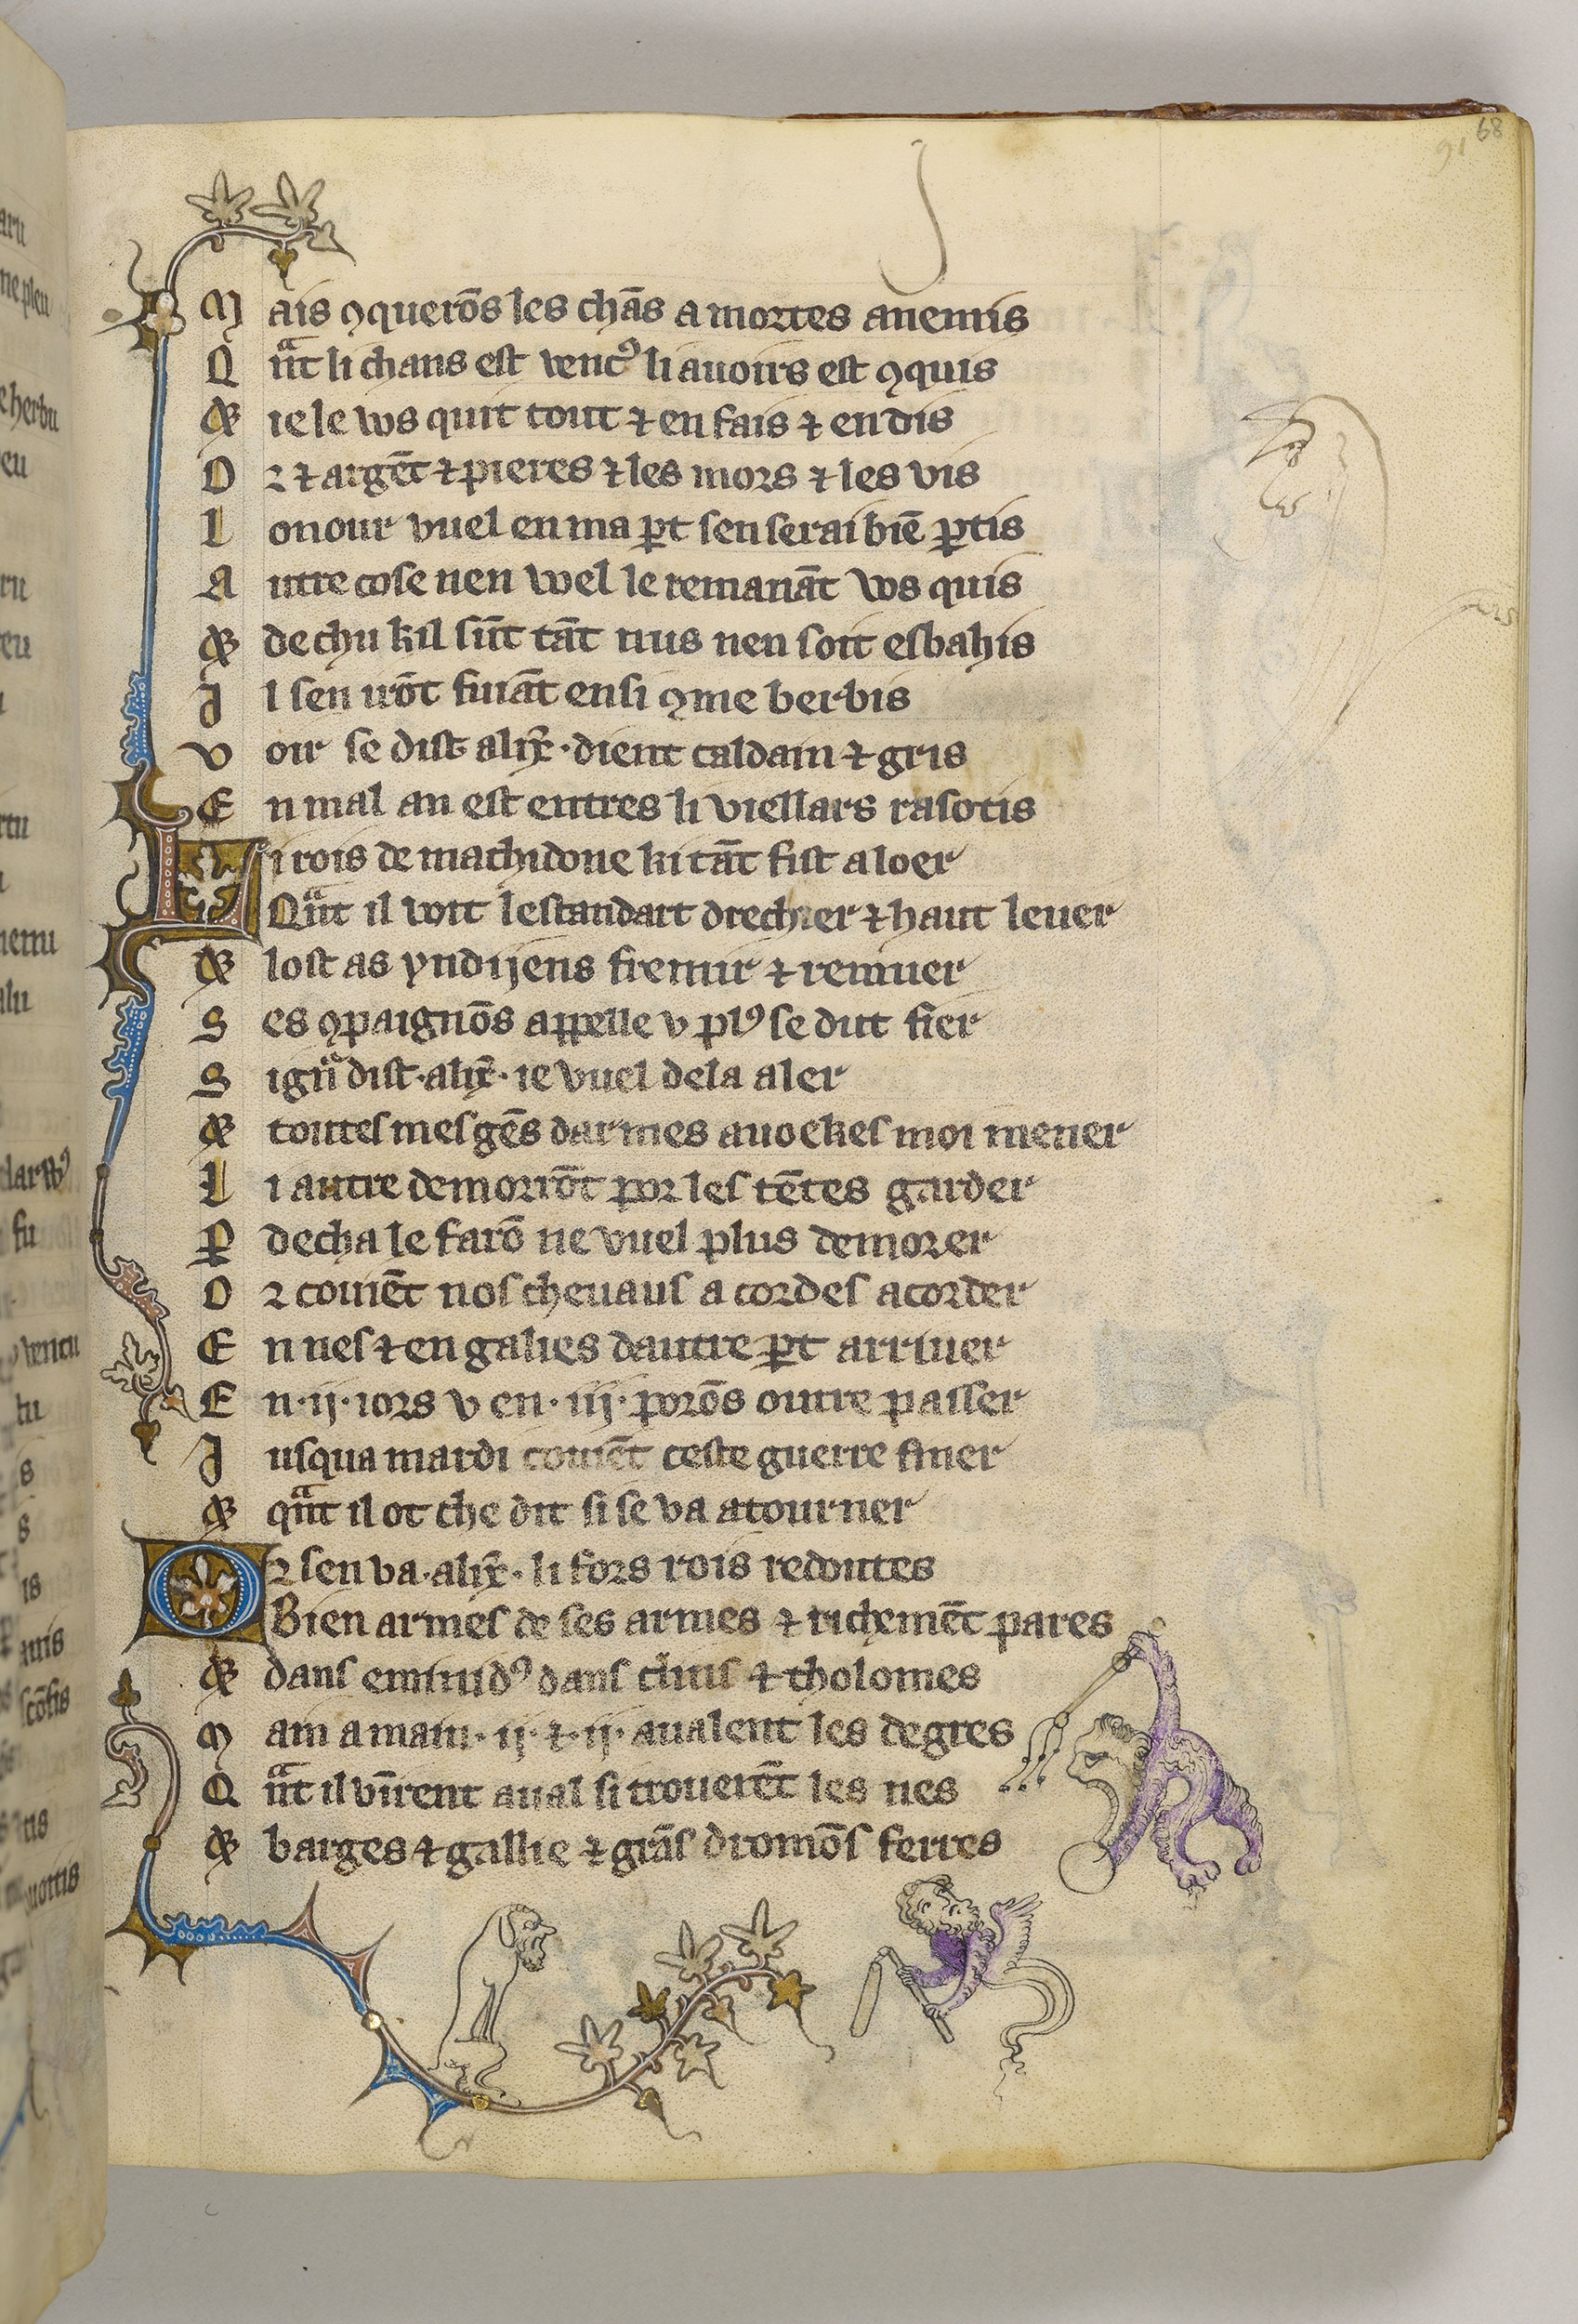 68
91
M ais ꝯquerõs les chãs a mortes anemis
Q nᷓt li chans est vencꝰ li auoirs est ꝯquis
Et ie le vos quit tout ⁊ en fais ⁊ en dis
O ꝛ ⁊ argẽt ⁊ pieres ⁊ les mors ⁊ les vis
L onour vuel en ma ꝑt sen serai biẽ ꝑtis
A utre cose nen voel le remanãt vos quis
Et de chu kil sũt tãt nus nen soit esbahis
I l sen irõt fuiãt ensi ꝯme berbis
V oir se dist alix̃ · dient caldain ⁊ gris
E n mal an est entres li viellars rasotis
L i rois de machidone ki tãt fist a loer
Qᷓnt il voit lestandart drechier ⁊ haut leuer
Et lost as yndijens fremir ⁊ remuer
S es ꝯpaignõs appelle v plꝰ se dut fier
S ignᷓ dist · alix̃ · ie vuel dela aler
Et toutes mes gẽs darmes auoekes moi mener
L i autre demorrõt por les tẽtes garder
P decha le farõ ne vuel plus demorer
O ꝛ couiẽt nos cheuaus a cordes acorder
E n nes ⁊ en galies dautre ꝑt arriuer
E n · ij · iors v en · iij · porõs outre passer
I usqua mardi couiẽt ceste guerre finer
Et qᷓnt il ot che dit si se va atourner
O ꝛ sen va · alix̃ · li fors rois redoutes
Bien armes de ses armes ⁊ richemẽt pares
Et dans eminidꝰ dans clins ⁊ tholomes
M ain a main · ij · ⁊ · ij · aualent les degres
Q nᷓt il vĩrent aual si trouerẽt les nes
Et barges ⁊ gallie ⁊ grãs dromõs ferres